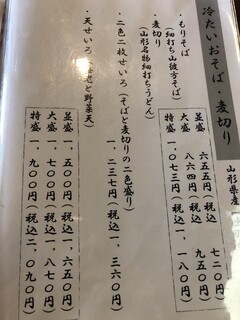 冷たいおそば・麦切り
山形県産
・もりそば
(細打ち山彼方そば)
・麦切り
(山形名物細打ちうどん)
並盛 六五五円(税込 七二〇円)
大盛 八六四円(税込 九五〇円)
特盛 一、〇七三円(税込一、一八〇円)
・二色二枚せいろ(そばと麦切りの二色盛り)
一、二三七円(税込一、三六〇円)
・天せいろ(海老と野菜天)
並盛 一、五〇〇円(税込一、六五〇円)
大盛 一、七〇〇円(税込一、八七〇円)
特盛 一、九〇〇円(税込二、〇九〇円)